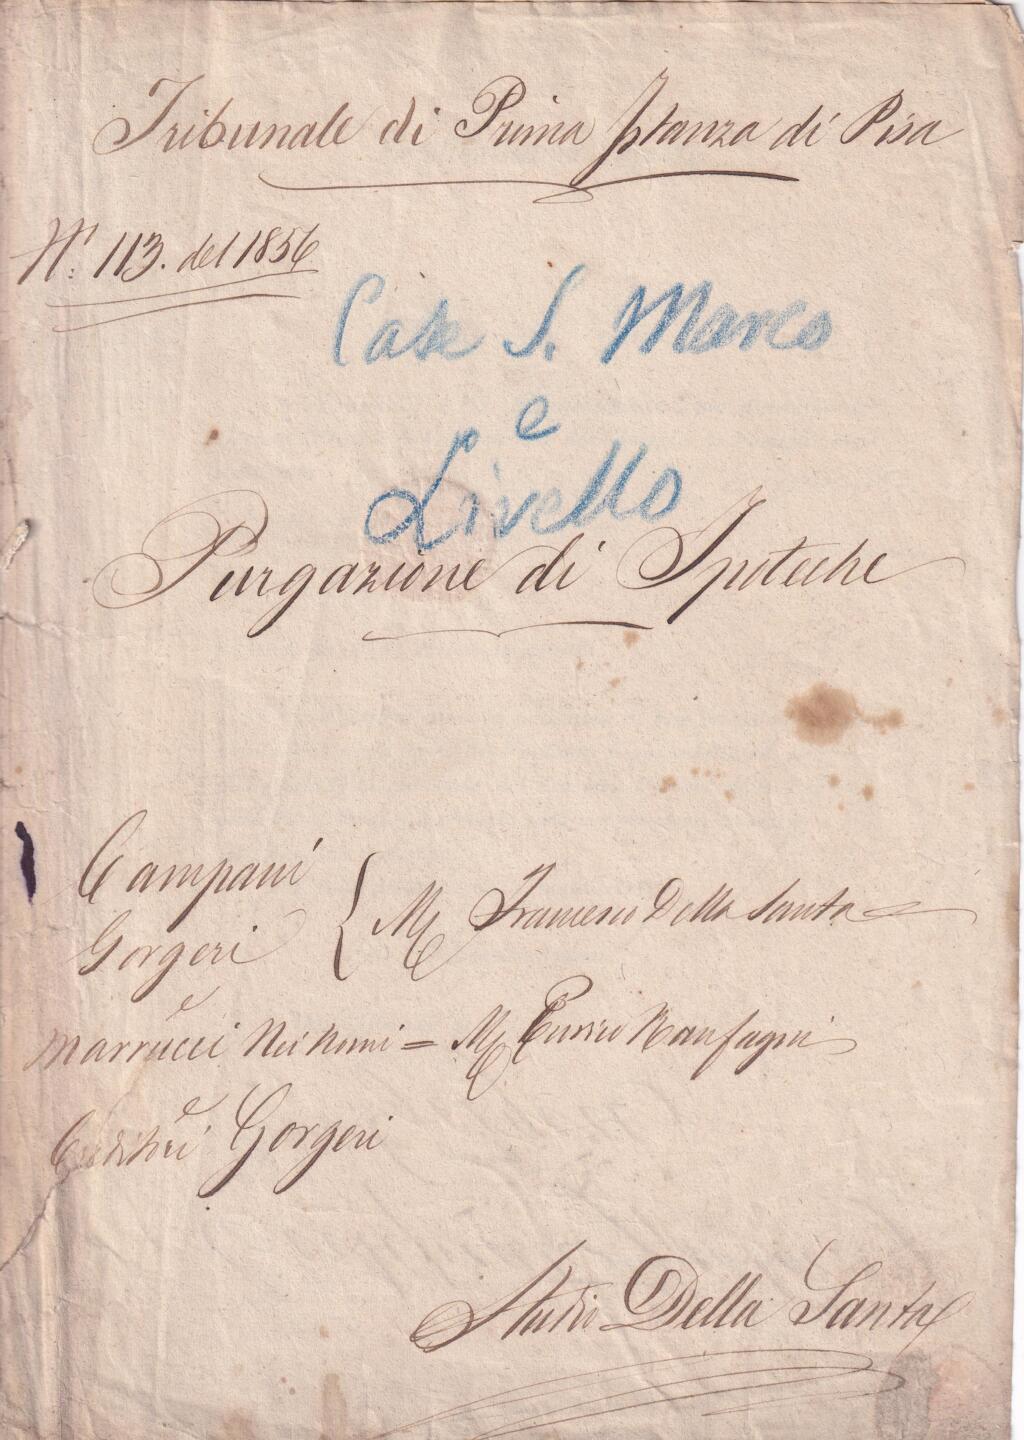 Tribunale di Prima Istanza di Pisa
N.º 113. del 1856
Case S. Marco
e
Livello
Purgazione di Ipoteche
Campani
Gorgeri
Mr Francesco Della Santa
e
Marrucci Nei Nomi = Mr Ranfagni
e
Creditori Gorgeri
Studio Della Santa